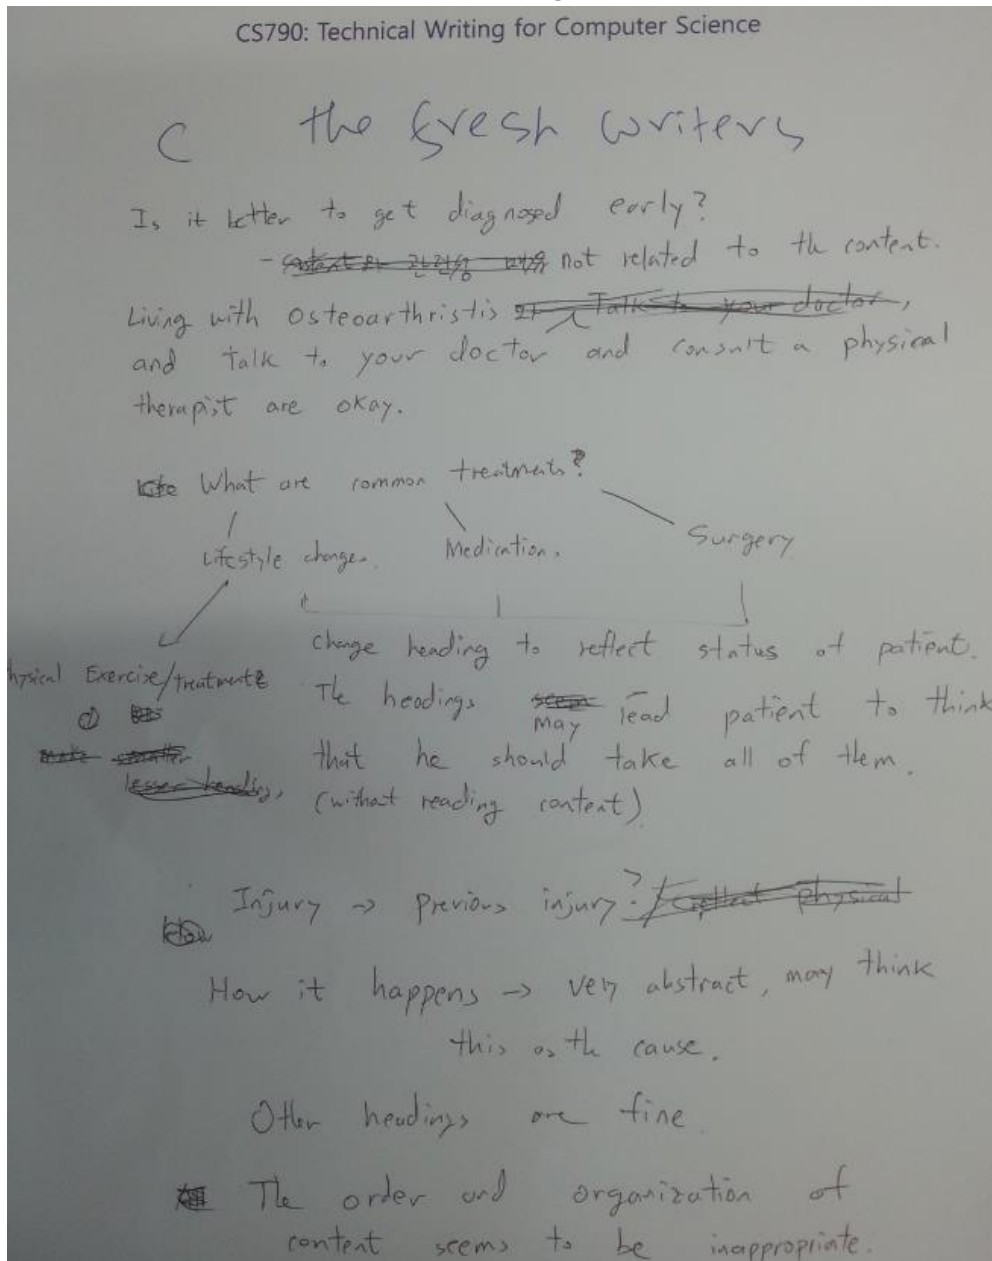 CS790: Technical Writing for Computer Science
C the fresh writers
Is it better to get diagnosed early?
- not related to th content.
Living with Osteoarthristis Talk to your doctor,
and talk to your doctor and consult a physical
therapist are okay.
What are common treatments?
Lifestyle change. Medication. Surgery
change heading to reflect status of patient.
hysical Exercise/treatment
The headings may lead patient to think
that he should take all of them.
lesser heading,
(without reading content)
Injury → previous injury? / reflect physical
How
How it happens → very abstract, may think
this as th cause.
Other headings are fine.
The order and organization of
content seems to be inappropriate.